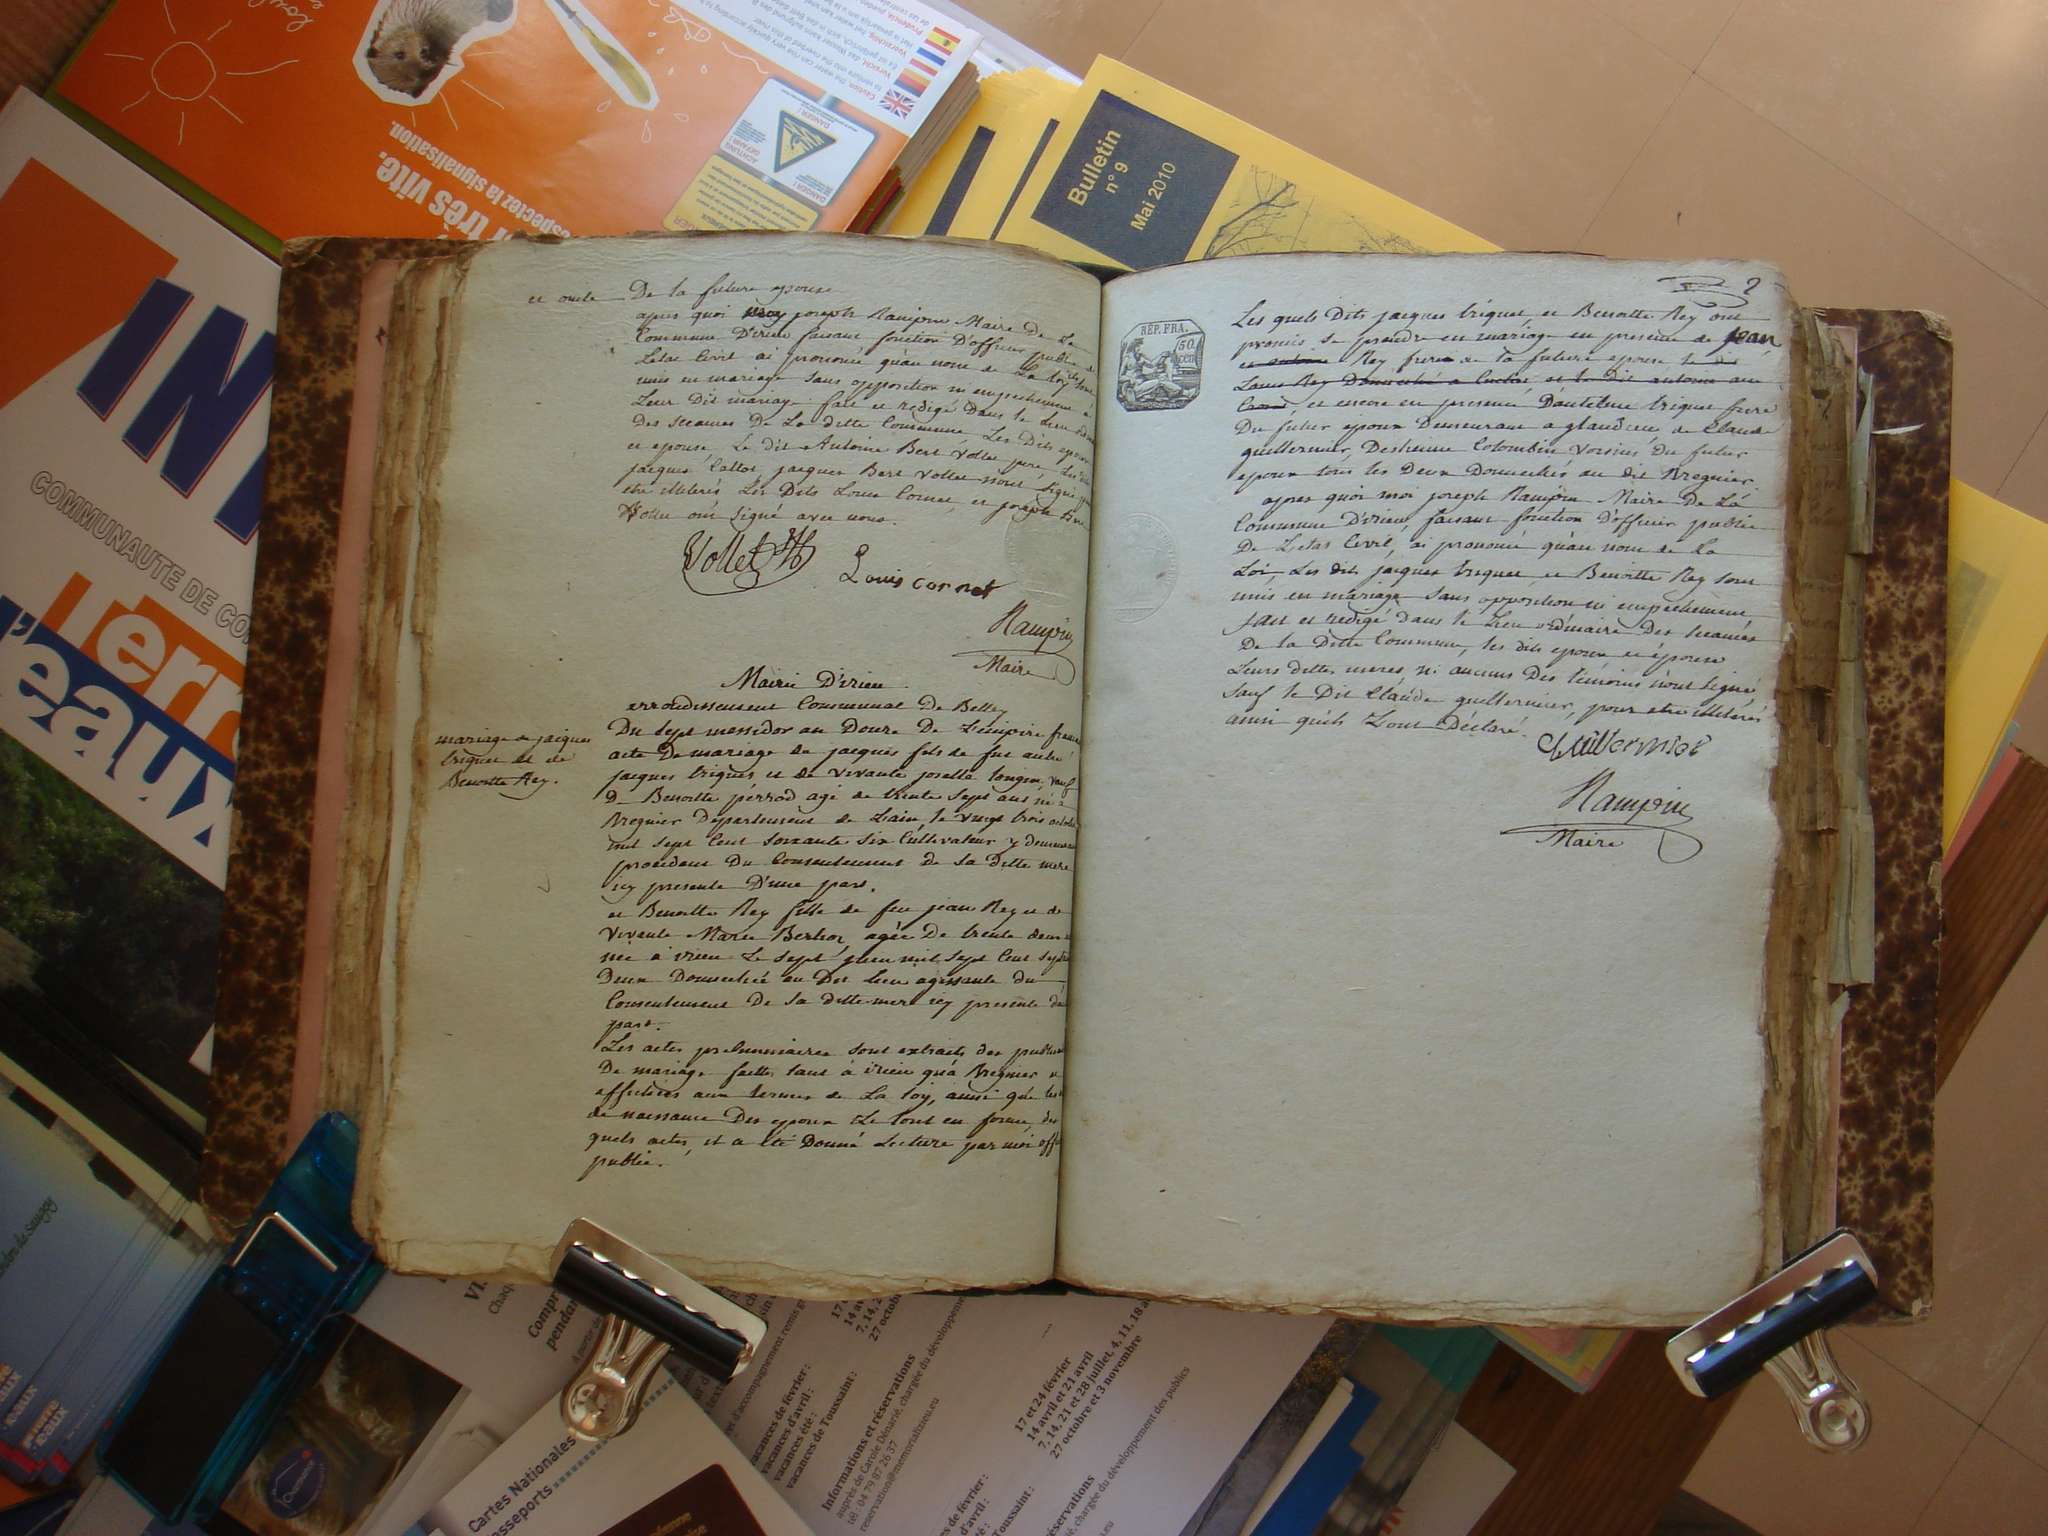 et oncle De la future epouse
apres quoi moy joseph Rampin Maire De La
Commune D'irieu faisant fonction D'officier public de
Letat Civil ai prononcé qu'au nom de La loy
unis en mariage sans opposition ni empechement a
Leur Dit mariage fait et redigé Dans le Lieu
Des Seances De La ditte Commune Les Dits epoux
et epouse, Le dit Antoine Bert Vollet pere, Les
jacques Callot, jacques Bert Vollet nont signé pour
etre illiterés Les Dits Louis Cornet, et joseph Bert
Vollet ont signé avec nous.
Vollet
Louis cornet
Rampin
Maire
Mairie D'irieu
arrondissement Communal de Belley
mariage de jacques
triquet et de
Benoitte Rey.
Du sept messidor an Douze De L'empire francais
acte De mariage de jacques fils de feu autre
jacques triquet et de vivante josette longin, veuf
D Benoitte perrod agé de trente sept ans né a
Bregnier Departement de L'ain, le vingt trois octobre
mil sept Cent soixante six Cultivateur y demeurant
procedant Du Consentement de sa Ditte mere
icy presente D'une part.
et Benoitte Rey fille de feu jean Rey et de
vivante Marie Berlioz agée De trente deux
née à irieu Le sept juin mil sept Cent septante
Deux Domiciliée au Dit Lieu agissante du
Consentement De sa ditte mere icy presente
part.
Les actes preliminaires sont extraits des publications
De mariage faittes tant à irieu qu'à Bregnier et
affichées aux termes de La loy, ainsi que les
de naissance Des epoux Le tout en forme, des
quels actes, il a été Donné Lecture par moi officier
public.
2
REP. FRA.
50
cen
Les quels Dits jacques triquet, et Benoitte Rey ont
promis se prendre en mariage en presence de jean
et antoine Rey frere de la future epouse le dit
Louis Rey Domicilié a et le dit antoine
et encore en presence D'antelme triquet frere
Du futur epoux Demeurant a glandieu, de Claude
guillermier, Destienne Colombin voisins Du futur
epoux tous les Deux Domiciliés au dit Bregnier
apres quoi moi joseph Rampin Maire De La
Commune D'irieu, faisant fonction D'officier public
De Letat Civil, ai prononcé qu'au nom de La
Loi, Les dits jacques triquet et Benoitte Rey sont
unis en mariage sans opposition ni empechement
fait et redigé Dans le Lieu ordinaire Des seances
De la Ditte Commune, les dits epoux et epouse
Leurs dittes meres, ni aucuns Des témoins n'ont signé
sauf le Dit Claude guillermier, pour etre illiterés
ainsi qu'ils L'ont Déclaré.
Guillermier
Rampin
Maire
très vite.
espectez la signalisation.
DANGER !
ACHTUNG
GEFAHR !
Bulletin
n° 9
Mai 2010
COMMUNAUTE DE CO
Terr
d'eaux
Cartes Nationales
asseports
vacances de février :
vacances d'avril :
vacances été :
vacances de Toussaint :
17 et 24 février
14 avril et 21 avril
7, 14, 21 et 28 juillet, 4, 11, 18 a
27 octobre et 3 novembre
Informations et réservations
auprès de Carole Dénarié, chargée du développement des publics
tél : 04 79 87 26 37
reservation@memorializieu.eu